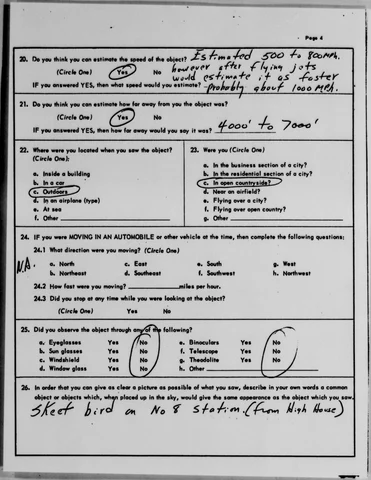 Page 4
20. Do you think you can estimate the speed of the object? Estimated 500 to 800 MPH.
(Circle One) Yes No however after flying jets
would estimate it as faster
IF you answered YES, then what speed would you estimate? probably about 1000 MPH.
21. Do you think you can estimate how far away from you the object was?
(Circle One) Yes No
IF you answered YES, then how far away would you say it was? 4000' to 7000'
22. Where were you located when you saw the object?
(Circle One):
a. Inside a building
b. In a car
c. Outdoors
d. In an airplane (type)
e. At sea
f. Other
23. Were you (Circle One)
a. In the business section of a city?
b. In the residential section of a city?
c. In open countryside?
d. Near an airfield?
e. Flying over a city?
f. Flying over open country?
g. Other
24. IF you were MOVING IN AN AUTOMOBILE or other vehicle at the time, then complete the following questions:
24.1 What direction were you moving? (Circle One)
N.A.
a. North c. East e. South g. West
b. Northeast d. Southeast f. Southwest h. Northwest
24.2 How fast were you moving? miles per hour.
24.3 Did you stop at any time while you were looking at the object?
(Circle One) Yes No
25. Did you observe the object through any of the following?
a. Eyeglasses Yes No e. Binoculars Yes No
b. Sun glasses Yes No f. Telescope Yes No
c. Windshield Yes No g. Theodolite Yes No
d. Window glass Yes No h. Other
26. In order that you can give as clear a picture as possible of what you saw, describe in your own words a common
object or objects which, when placed up in the sky, would give the same appearance as the object which you saw.
Skeet bird on No 8 Station. (from High House)